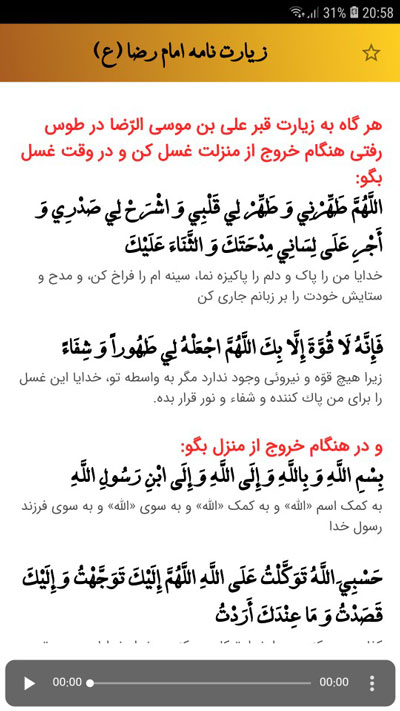 31% 20:58
زیارت نامه امام رضا (ع)
هر گاه به زیارت قبر علی بن موسی الرّضا در طوس
رفتی هنگام خروج از منزلت غسل کن و در وقت غسل
بگو:
اللَّهُمَّ طَهِّرْنِي وَ طَهِّرْ لِي قَلْبِي وَ اشْرَحْ لِي صَدْرِي وَ
أَجْرِ عَلَى لِسَانِي مِدْحَتَكَ وَ الثَّنَاءَ عَلَيْكَ
خدایا من را پاک و دلم را پاکیزه نما، سینه ام را فراخ کن، و مدح و
ستایش خودت را بر زبانم جاری کن
فَإِنَّهُ لَا قُوَّةَ إِلَّا بِكَ اللَّهُمَّ اجْعَلْهُ لِي طَهُوراً وَ شِفَاءً
زیرا هیچ قوّه و نیروئی وجود ندارد مگر به واسطه تو، خدایا این غسل
را برای من پاك کننده و شفاء و نور قرار بده.
و در هنگام خروج از منزل بگو:
بِسْمِ اللَّهِ وَ بِاللَّهِ وَ إِلَى اللَّهِ وَ إِلَى ابْنِ رَسُولِ اللَّهِ
به کمک اسم «الله» و به کمک «الله» و به سوی «الله» و به سوی فرزند
رسول خدا
حَسْبِيَ اللَّهُ تَوَكَّلْتُ عَلَى اللَّهِ اللَّهُمَّ إِلَيْكَ تَوَجَّهْتُ وَ إِلَيْكَ
قَصَدْتُ وَ مَا عِنْدَكَ أَرَدْتُ
00:00 00:00